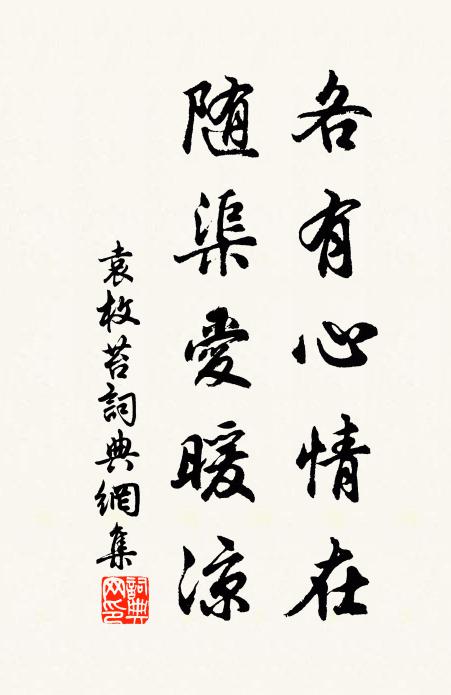 各有心情在
随渠愛暖涼
袁枚苔詞典網集
詞典網印